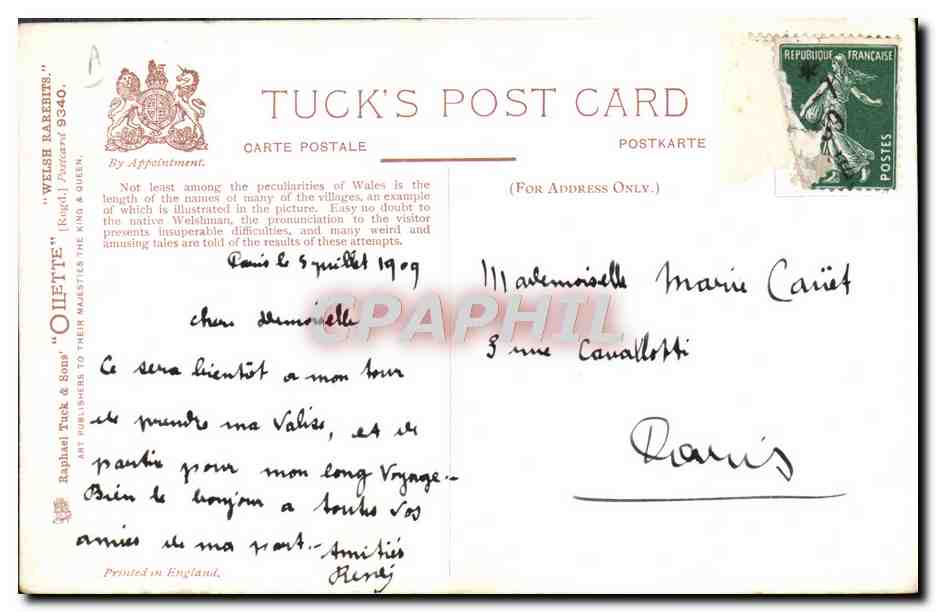 A
By Appointment.
TUCK'S POST CARD
CARTE POSTALE
POSTKARTE
Raphael Tuck & Sons' "OILETTE" [Regd.] Postcard 9340.
"WELSH RAREBITS."
ART PUBLISHERS TO THEIR MAJESTIES THE KING & QUEEN.
Not least among the peculiarities of Wales is the
length of the names of many of the villages, an example
of which is illustrated in the picture. Easy no doubt to
the native Welshman, the pronunciation to the visitor
presents insuperable difficulties, and many weird and
amusing tales are told of the results of these attempts.
Paris le 5 juillet 1909
chere demoiselle
Ce sera bientôt a mon tour
de prendre ma Valise, et de
partir pour mon long Voyage.-
Bien le bonjour a toutes vos
amies de ma part.- Amitiés
Printed in England.
(FOR ADDRESS ONLY.)
Mademoiselle Marie Caüet
3 rue Cavallotti
Paris
REPUBLIQUE FRANÇAISE
POSTES
CPAPHIL